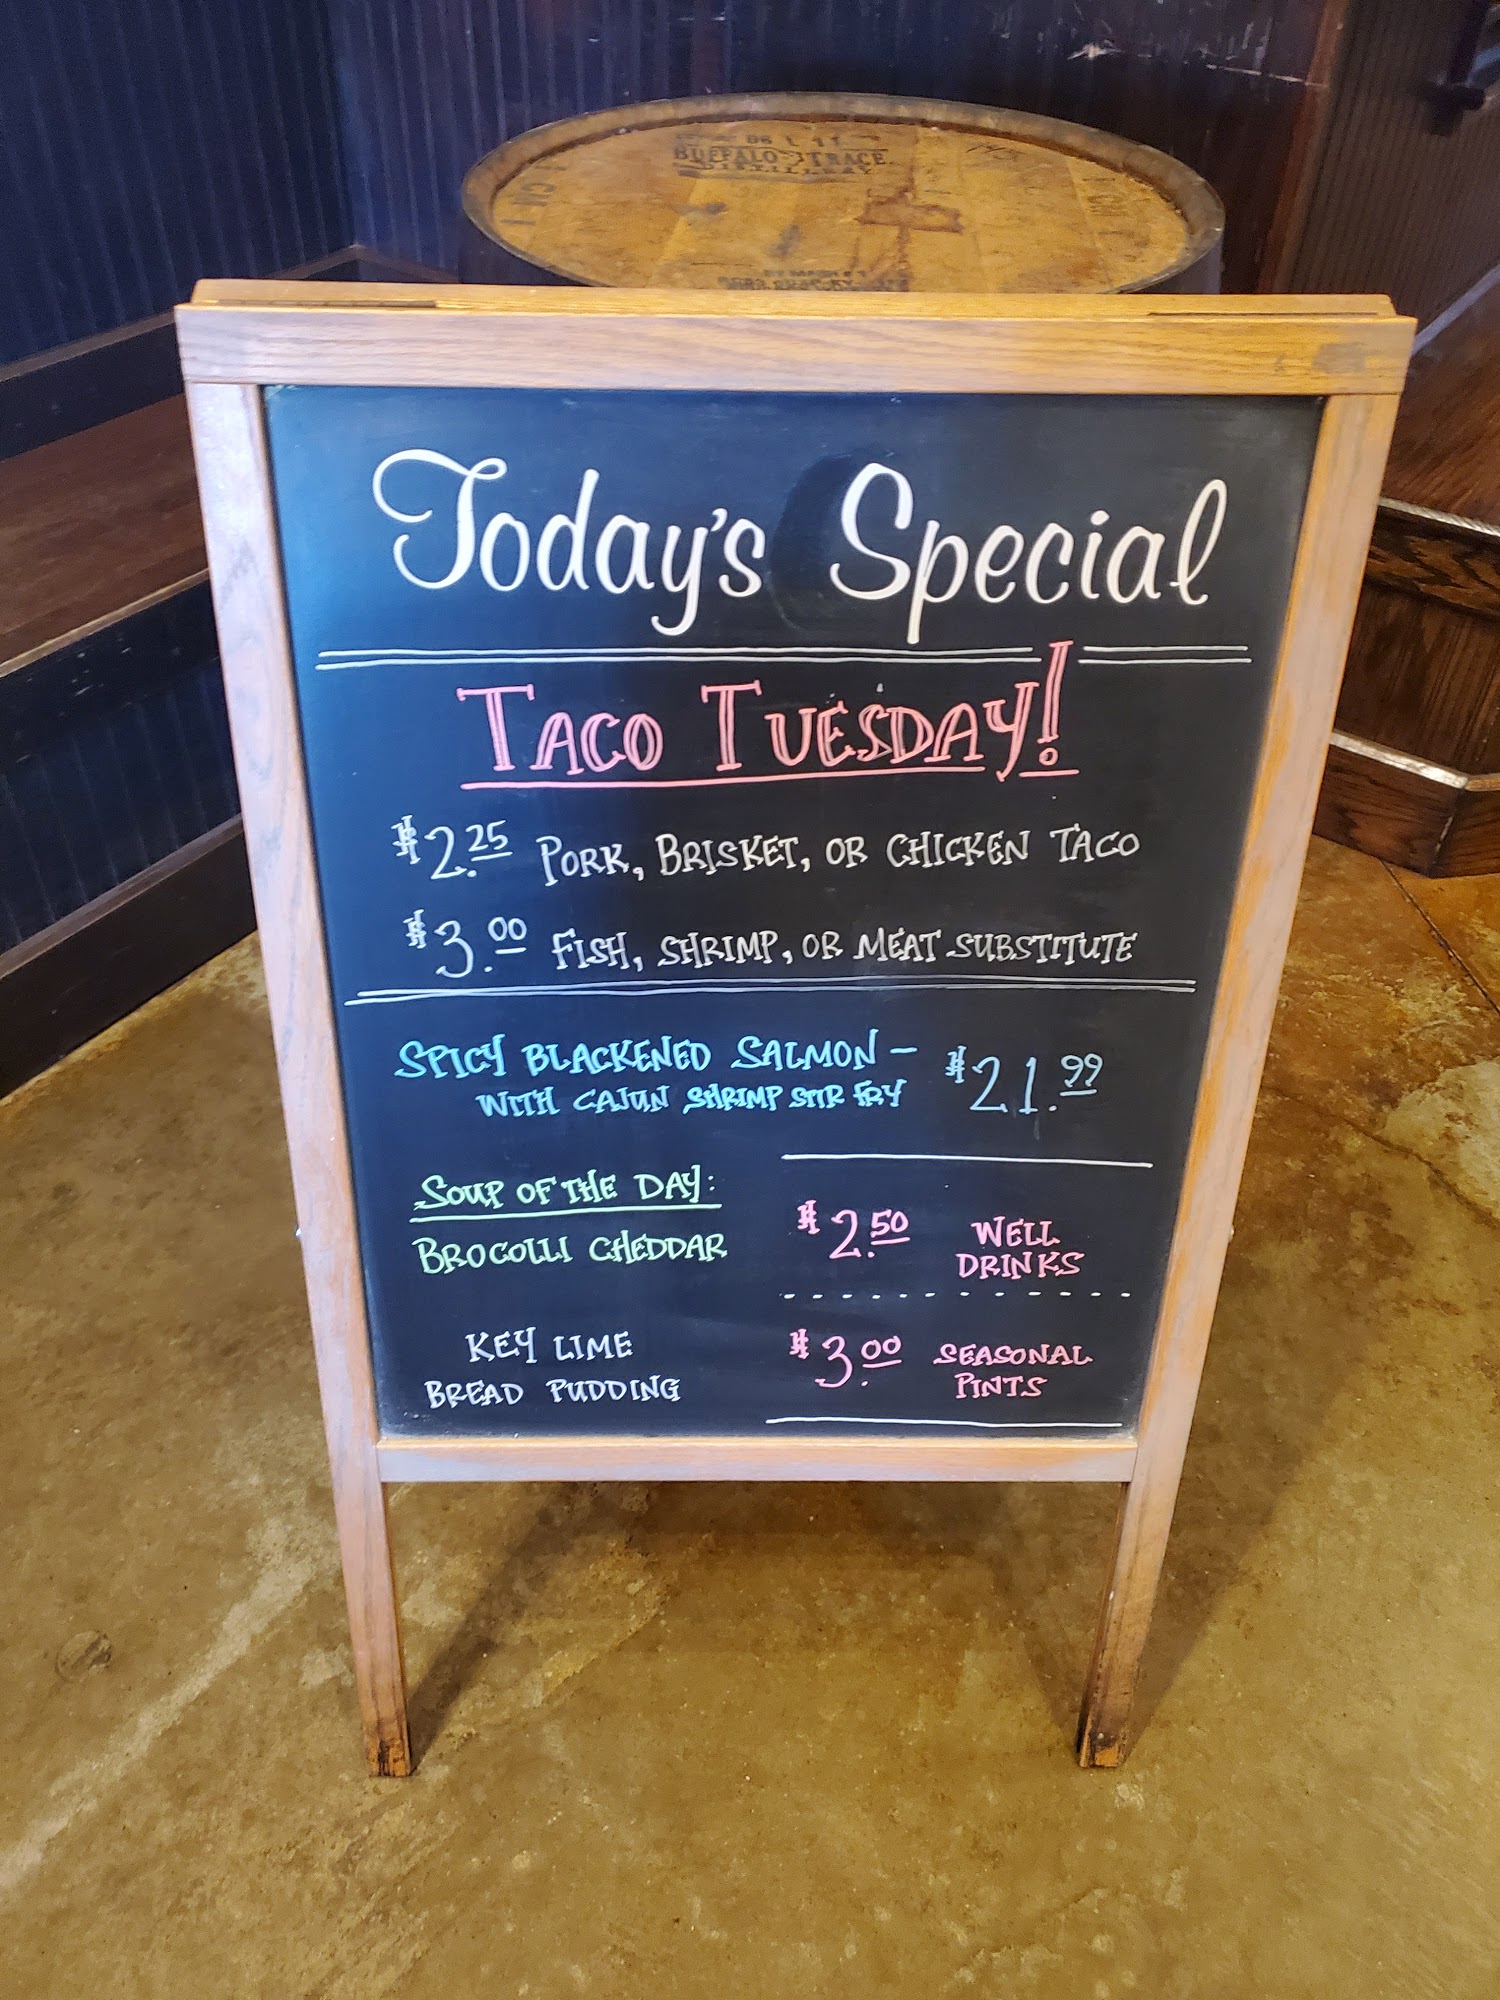 BUFFALO TRACE
DISTILLERY
Today's Special
TACO TUESDAY!
$2.25 PORK, BRISKET, OR CHICKEN TACO
$3.00 FISH, SHRIMP, OR MEAT SUBSTITUTE
SPICY BLACKENED SALMON - $21.99
WITH CAJUN SHRIMP STIR FRY
SOUP OF THE DAY:
BROCOLLI CHEDDAR
$2.50 WELL
DRINKS
KEY LIME
BREAD PUDDING
$3.00 SEASONAL
PINTS